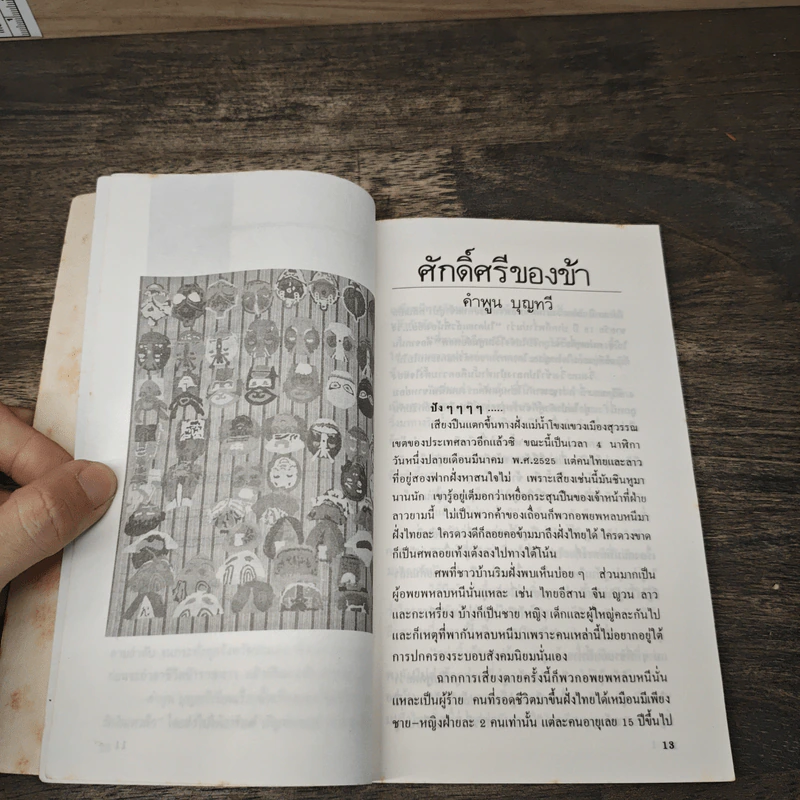 ศักดิ์ศรีของข้า
คำพูน บุญทวี
ปัง ๆ ๆ ๆ ๆ .....
เสียงปืนแตกขึ้นทางฝั่งแม่น้ำโขงแขวงเมืองสุวรรณ
เขตของประเทศลาวอีกแล้วซิ ขณะนี้เป็นเวลา 4 นาฬิกา
วันหนึ่งปลายเดือนมีนาคม พ.ศ.2525 แต่คนไทยและลาว
ที่อยู่สองฟากฝั่งหาสนใจไม่ เพราะเสียงเช่นนี้มันชินหูมา
นานนัก เขารู้อยู่เต็มอกว่าเหยื่อกระสุนปืนของเจ้าหน้าที่ฝ่าย
ลาวยามนี้ ไม่เป็นพวกค้าของเถื่อนก็พวกอพยพหลบหนีมา
ฝั่งไทยละ ใครดวงดีก็ลอยคอข้ามมาถึงฝั่งไทยได้ ใครดวงขาด
ก็เป็นศพลอยเท้งเต้งลงไปทางใต้โน้น
ศพที่ชาวบ้านริมฝั่งพบเห็นบ่อย ๆ ส่วนมากเป็น
ผู้อพยพหลบหนีนั่นแหละ เช่น ไทยอีสาน จีน ญวน ลาว
และกะเหรี่ยง บ้างก็เป็นชาย หญิง เด็กและผู้ใหญ่คละกันไป
และก็เหตุที่พากันหลบหนีมาเพราะคนเหล่านี้ไม่อยากอยู่ใต้
การปกครองระบอบสังคมนิยมนั่นเอง
ฉากการเสี่ยงตายครั้งนี้ก็พวกอพยพหลบหนีนั่น
แหละเป็นผู้ร้าย คนที่รอดชีวิตมาขึ้นฝั่งไทยได้เหมือนมีเพียง
ชาย-หญิงฝ่ายละ 2 คนเท่านั้น แต่ละคนอายุเลย 15 ปีขึ้นไป
13